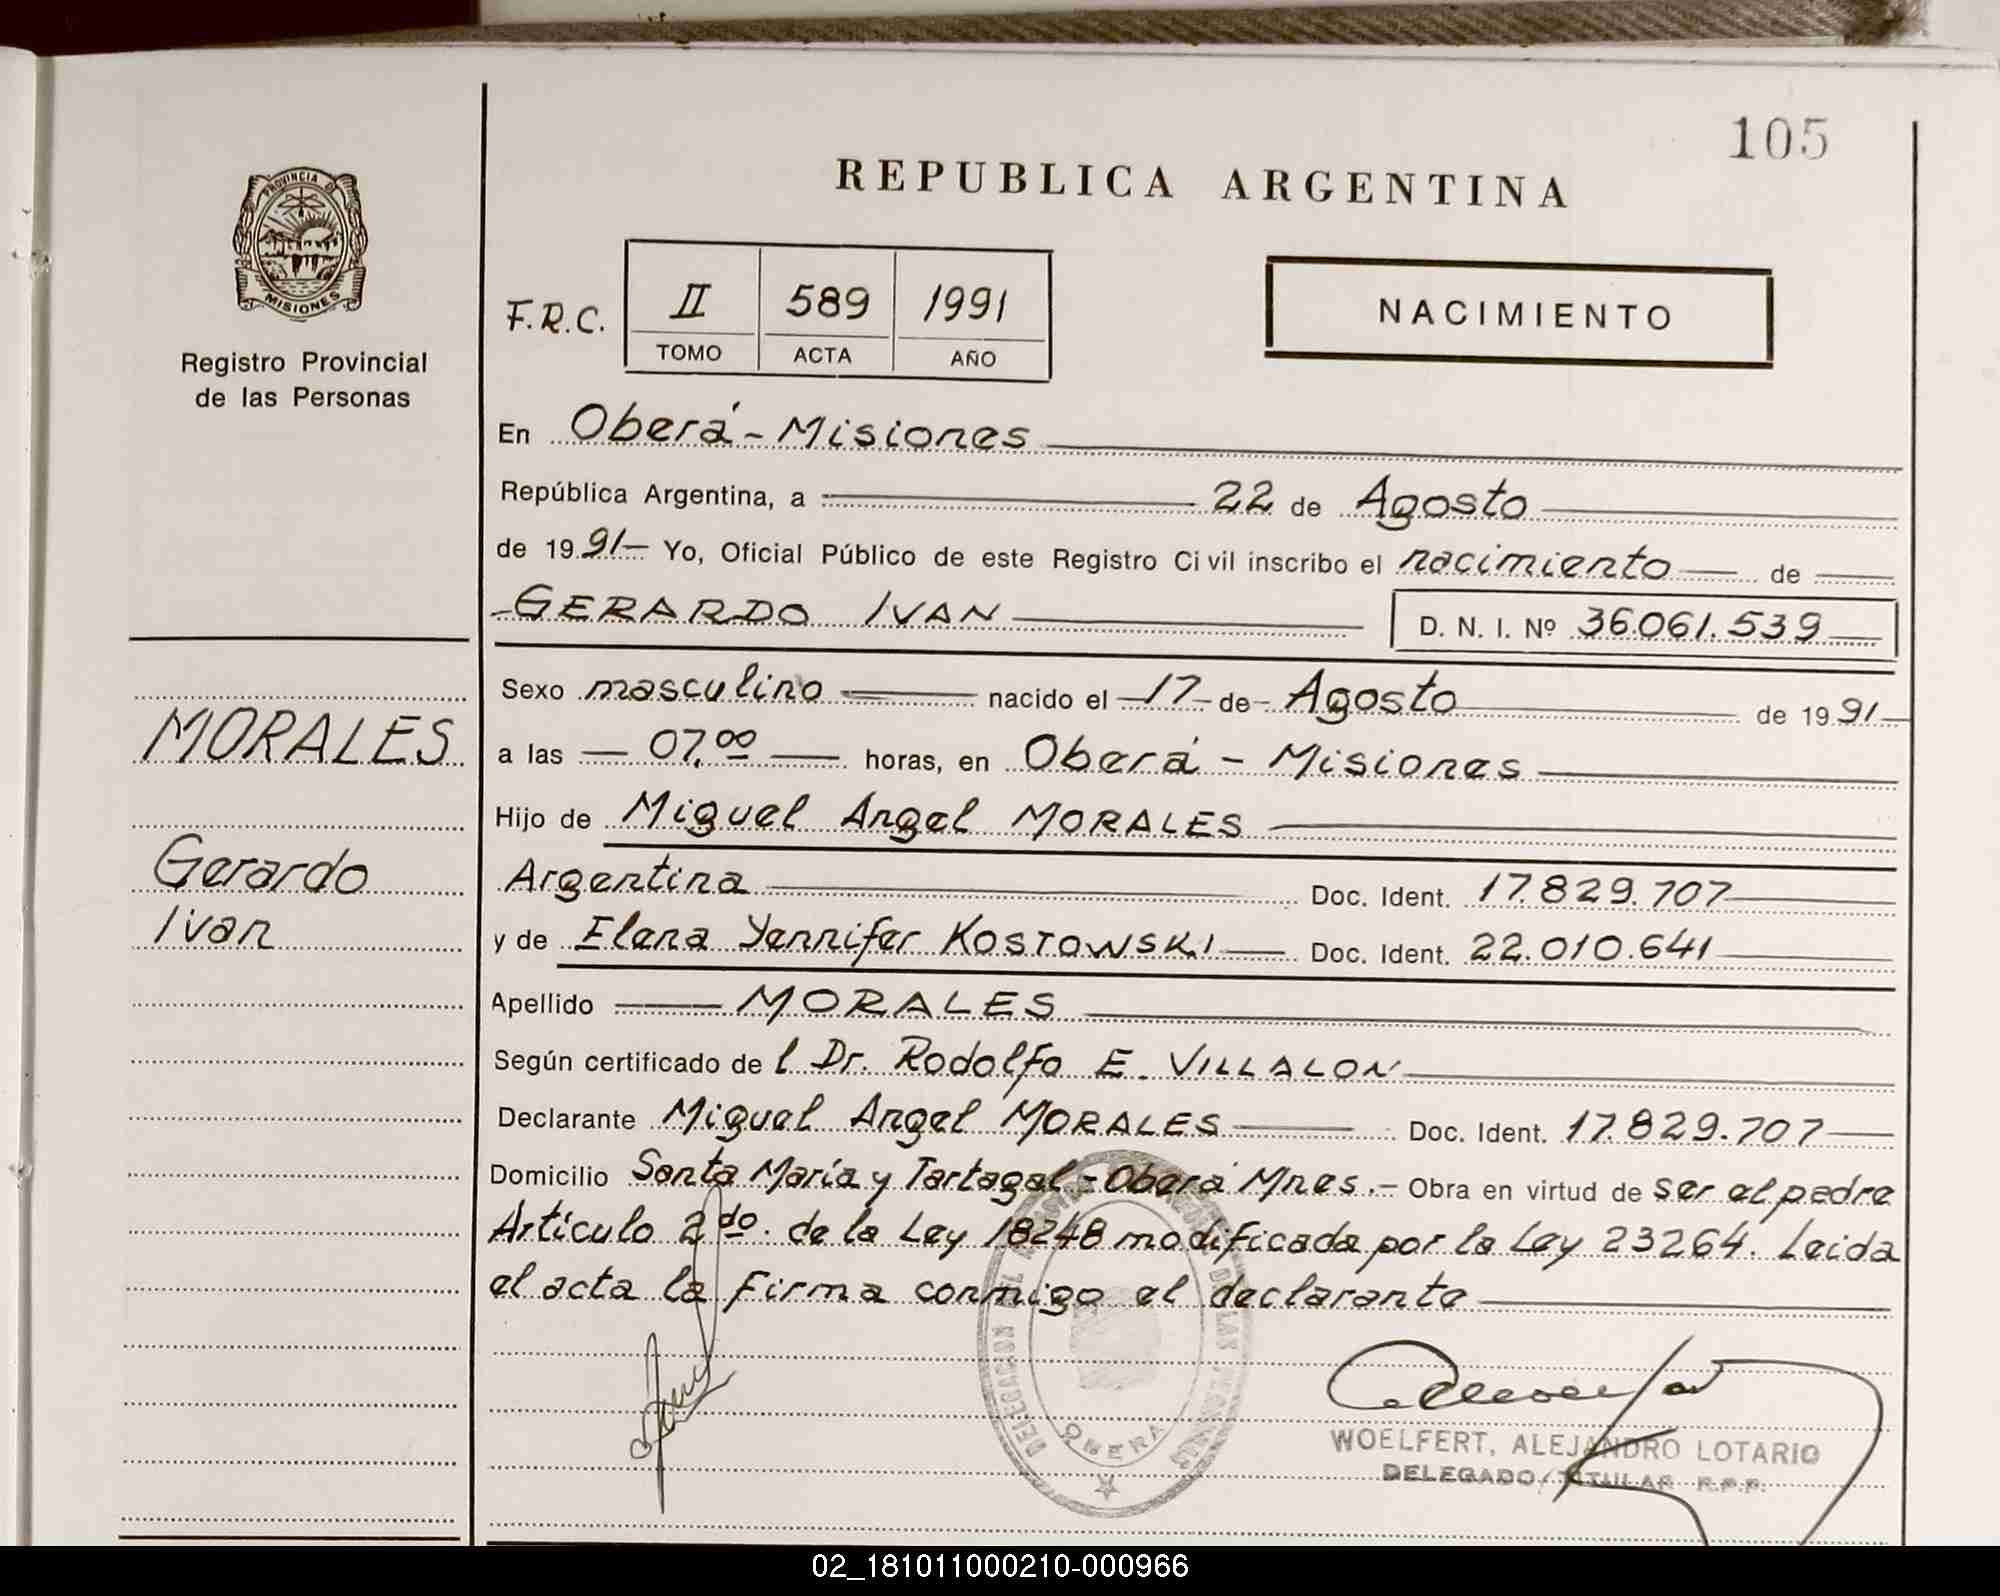 105
REPUBLICA ARGENTINA
PROVINCIA DE
MISIONES
Registro Provincial
de las Personas
F.R.C.
II 589 1991
TOMO ACTA AÑO
NACIMIENTO
En Oberá - Misiones
República Argentina, a 22 de Agosto
de 1991 Yo, Oficial Público de este Registro Civil inscribo el nacimiento de
GERARDO IVAN D. N. I. Nº 36.061.539
Sexo masculino nacido el 17 de Agosto de 1991
MORALES
a las 07,00 horas, en Oberá - Misiones
Hijo de Miguel Angel MORALES
Gerardo
Argentina Doc. Ident. 17.829.707
Ivan
y de Elena Yennifer KOSTOWSKI Doc. Ident. 22.010.641
Apellido MORALES
Según certificado de l Dr. Rodolfo E. VILLALON
Declarante Miguel Angel MORALES Doc. Ident. 17.829.707
Domicilio Santa María y Tartagal - Oberá Mnes.- Obra en virtud de ser el padre
Artículo 2do. de la Ley 18248 modificada por la Ley 23264. Leida
el acta la firma conmigo el declarante
OBERA
WOELFERT, ALEJANDRO LOTARIO
DELEGADO TITULAR R.P.P.
02_181011000210-000966